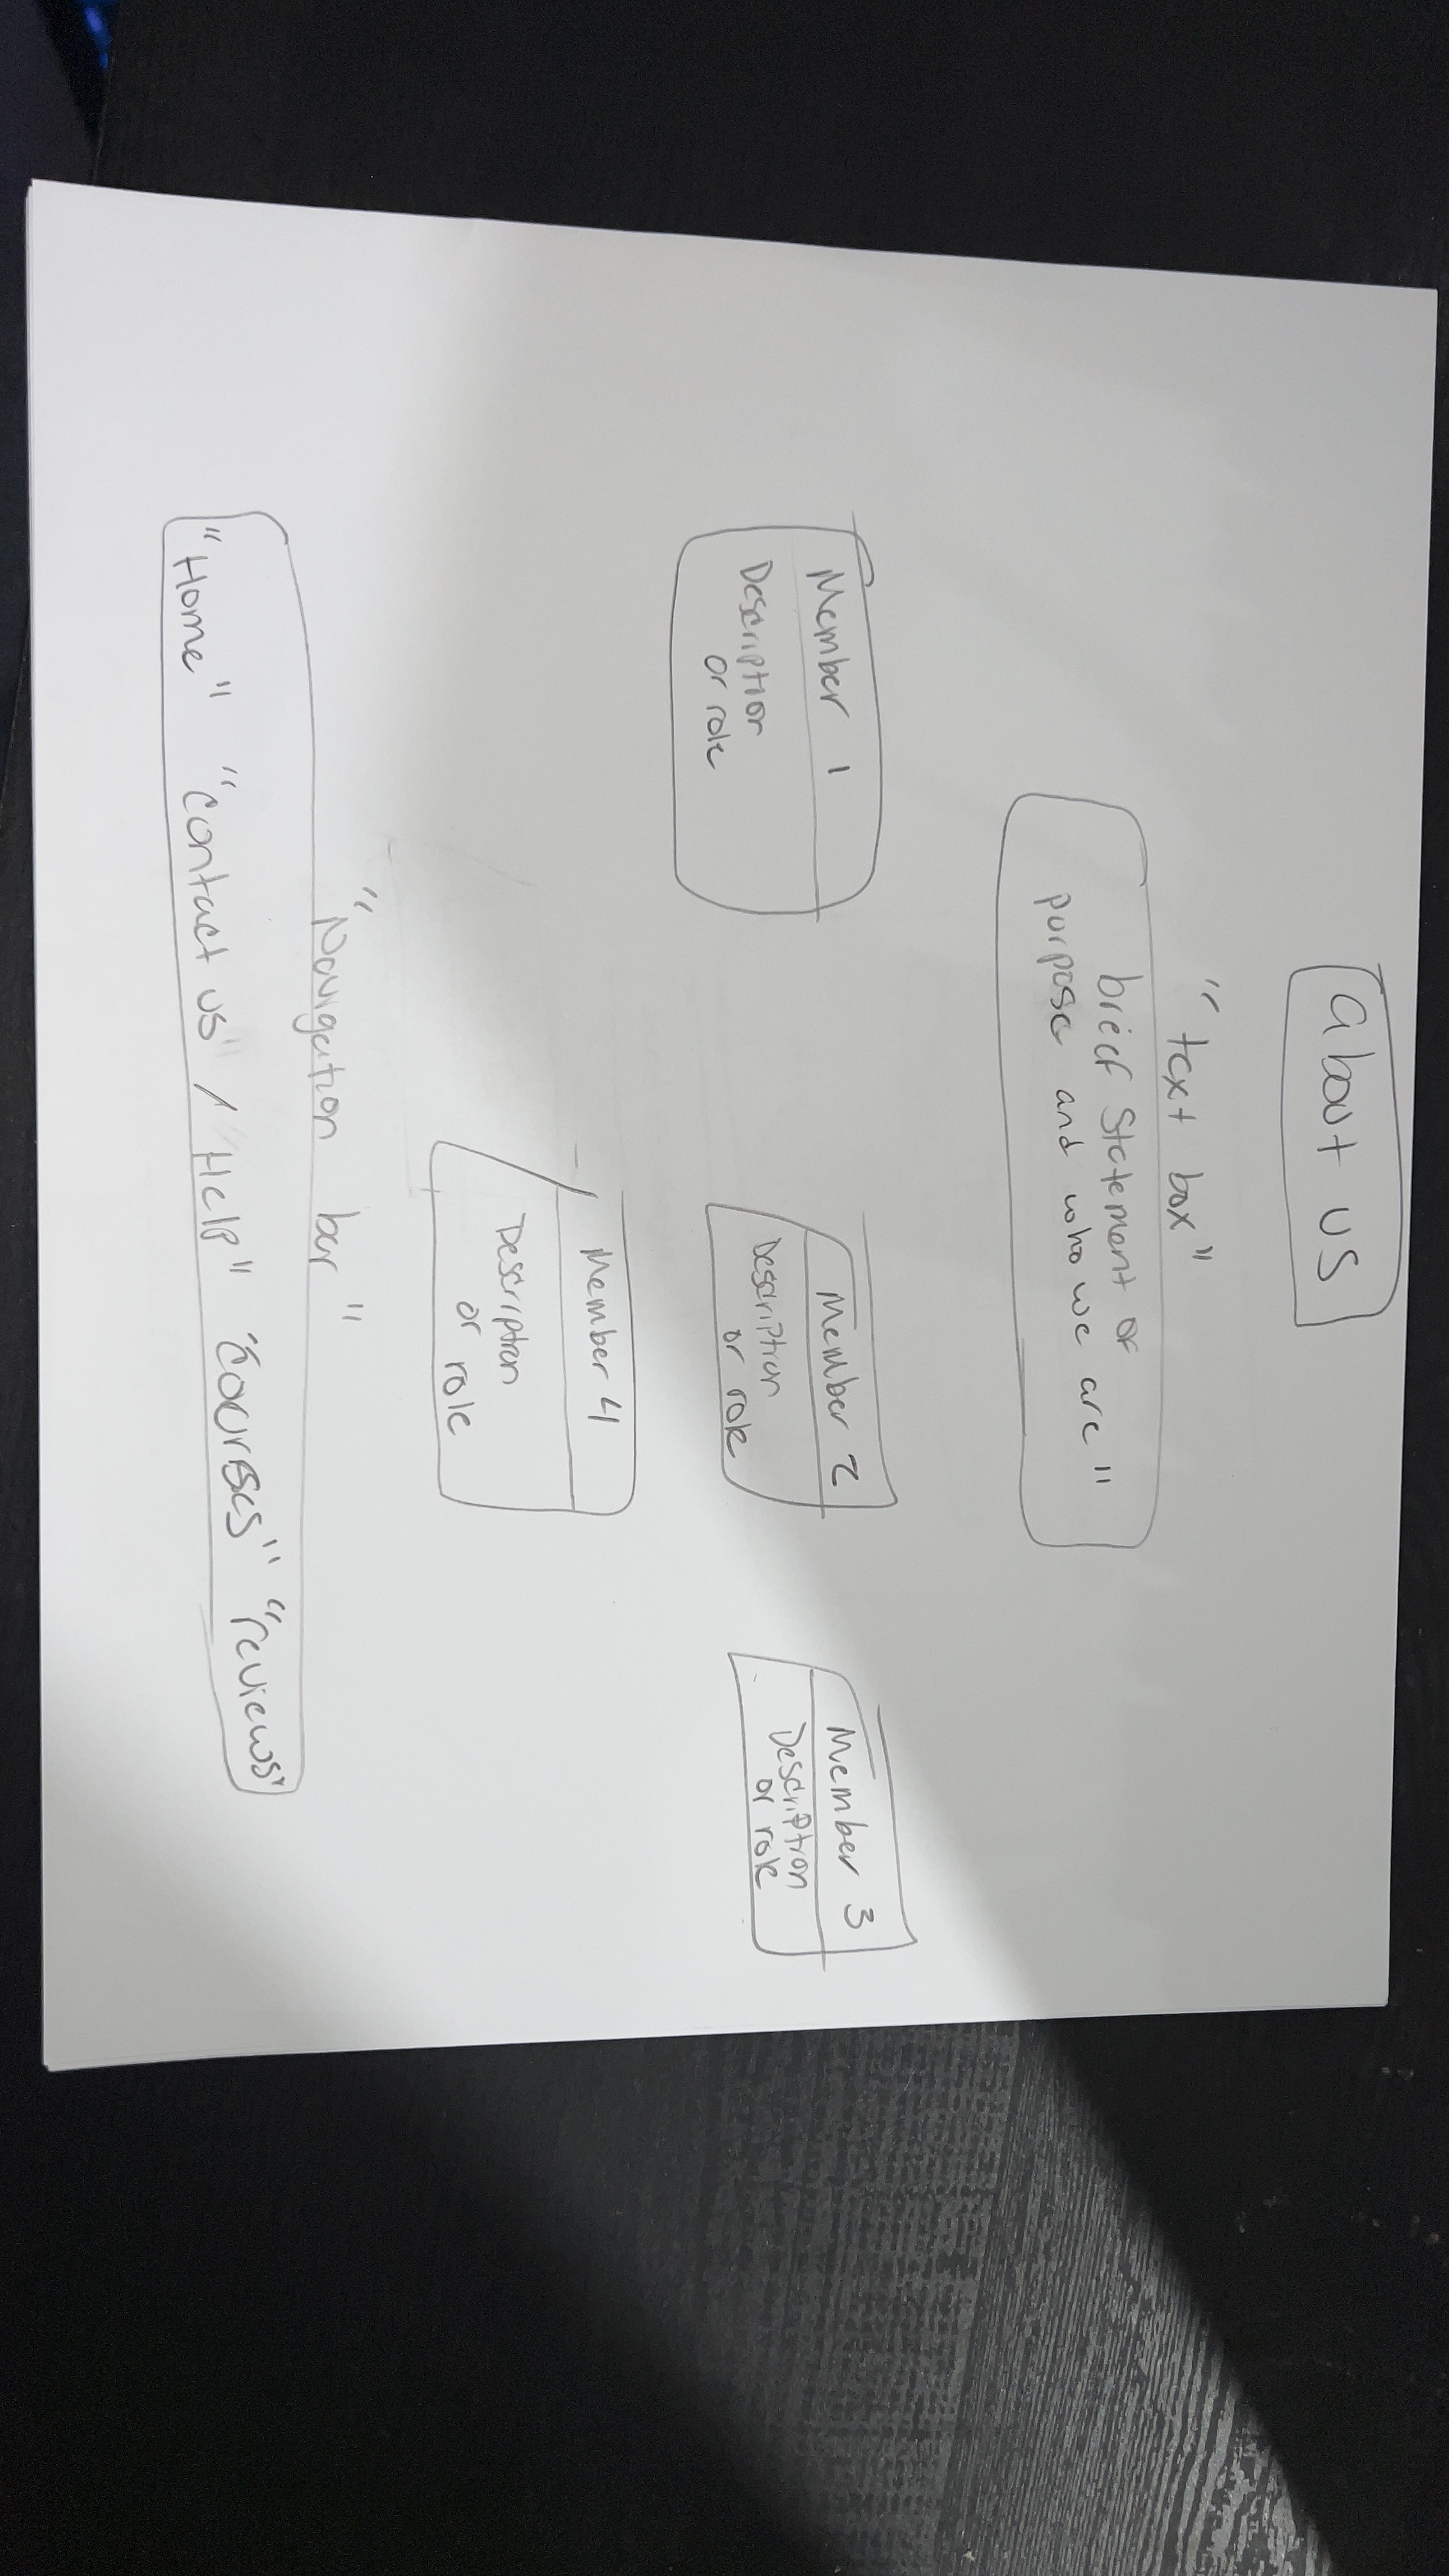 About us
"text box"
brief Statement of
purpose and who we are"
Member 1
Description
or role
Member 2
Description
or role
Member 3
Description
or role
Member 4
Description
or role
"Navigation bar"
"Home" "contact us" / Help" "Courses" "reviews"